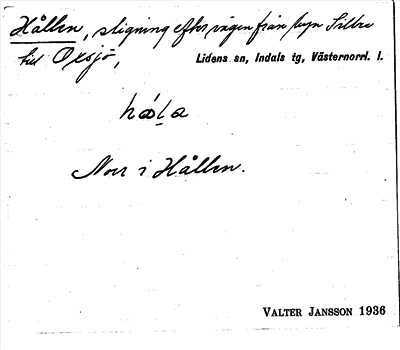 Hållen, stigning efter vägen från byn Sillre
till Oxsjö, Lidens sn, Indals tg, Västernorrl. l.
Norr i Hållen.
VALTER JANSSON 1936